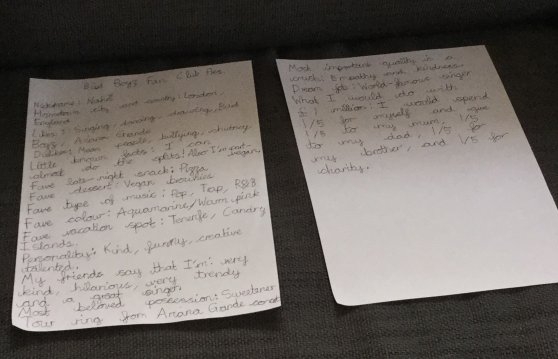 Bad Boyz Fan Club Pres
Nickname: Nabz
Hometown city and country: London,
England
Likes: Singing, dancing, drawing, Bad
Boyz, Ariana Grande
Dislikes: Mean people, bullying, chutney
Little known facts: I can
almost do the splits! Also I'm part-vegan,
Fave late-night snack: Pizza
Fave dessert: Vegan brownies
Fave type of music: Pop, Trap, R&B
Fave colour: Aquamarine/Warm pink
Fave vacation spot: Tenerife, Canary
Islands.
Personality: Kind, funny, creative
talented.
My friends say that I'm: very
kind, hilarious, very trendy
and a great singer.
Most beloved possession: Sweetener
Tour ring from Ariana Grande concert
Most important quality in a
crush: Empathy and kindness
Dream job: World-famous singer
What I would do with
£1 million: I would spend
1/5 for myself and give
1/5 to my mum, 1/5
to my dad, 1/5 for
my brother, and 1/5 for
charity.